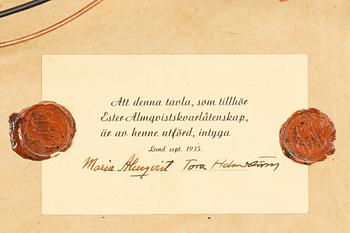 Att denna tavla, som tillhör
Ester Almqvistskvarlåtenskap,
är av henne utförd, intyga
Lund sept. 1935.
Maria Almqvist Tora Holmström